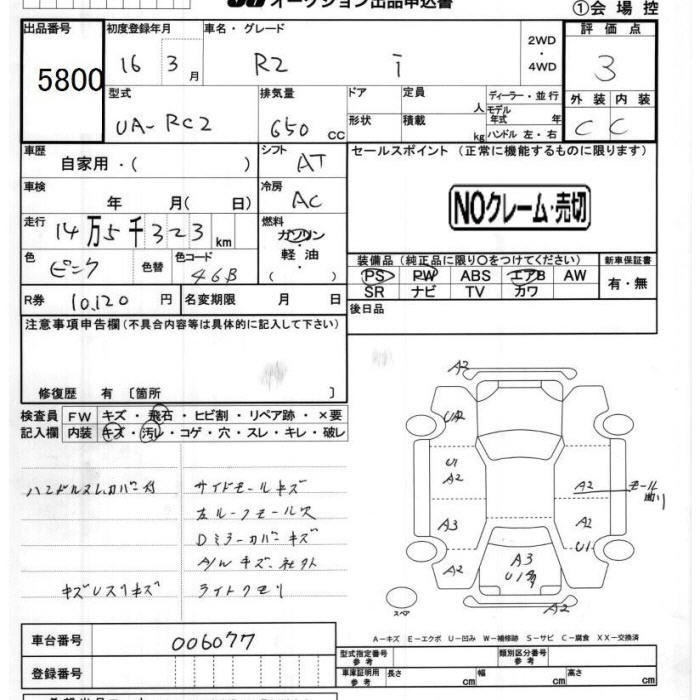 オークション出品申込書
①会場控
出品番号 初度登録年月 車名・グレード 2WD・4WD 評価点
5800 16 3月 R2 i 3
型式 排気量 ドア 定員 人 ディーラー・並行 外装 内装
UA-RC2 650cc 形状 積載 kg モデル年式 年 ハンドル 左・右 C C
車歴 シフト セールスポイント (正常に機能するものに限ります)
自家用・( ) AT
車検 冷房
年 月( 日) AC NOクレーム・売切
走行 燃料
14万5千323km ガソリン・軽油( )
色 色替 色コード 装備品(純正品に限り○をつけてください) 新車保証書
ピンク 46B PS PW ABS エアB AW 有・無
SR ナビ TV カワ
R券 10,120円 名変期限 月 日 後日品
注意事項申告欄(不具合内容等は具体的に記入して下さい)
修復歴 有〔箇所 〕
検査員 FW キズ・飛石・ヒビ割・リペア跡・×要
記入欄 内装 キズ・汚レ・コゲ・穴・スレ・キレ・破レ
ハンドルスレカバー付 サイドモールキズ
左ルーフモールス
Dミラーカバーキズ
A/Wキズ・社外
キズUスリキズ ライトクモリ
A2
UA2
U1
A2 A2 モール曲り
A3 A2
U1
A2 A3
U1多
A2
スペア
A-キズ E-エクボ U-凹み W-補修跡 S-サビ C-腐食 XX-交換済
車台番号 006077
登録番号
型式指定番号 参考 類別区分番号 参考
車庫証明用 参考 長さ cm 幅 cm 高さ cm